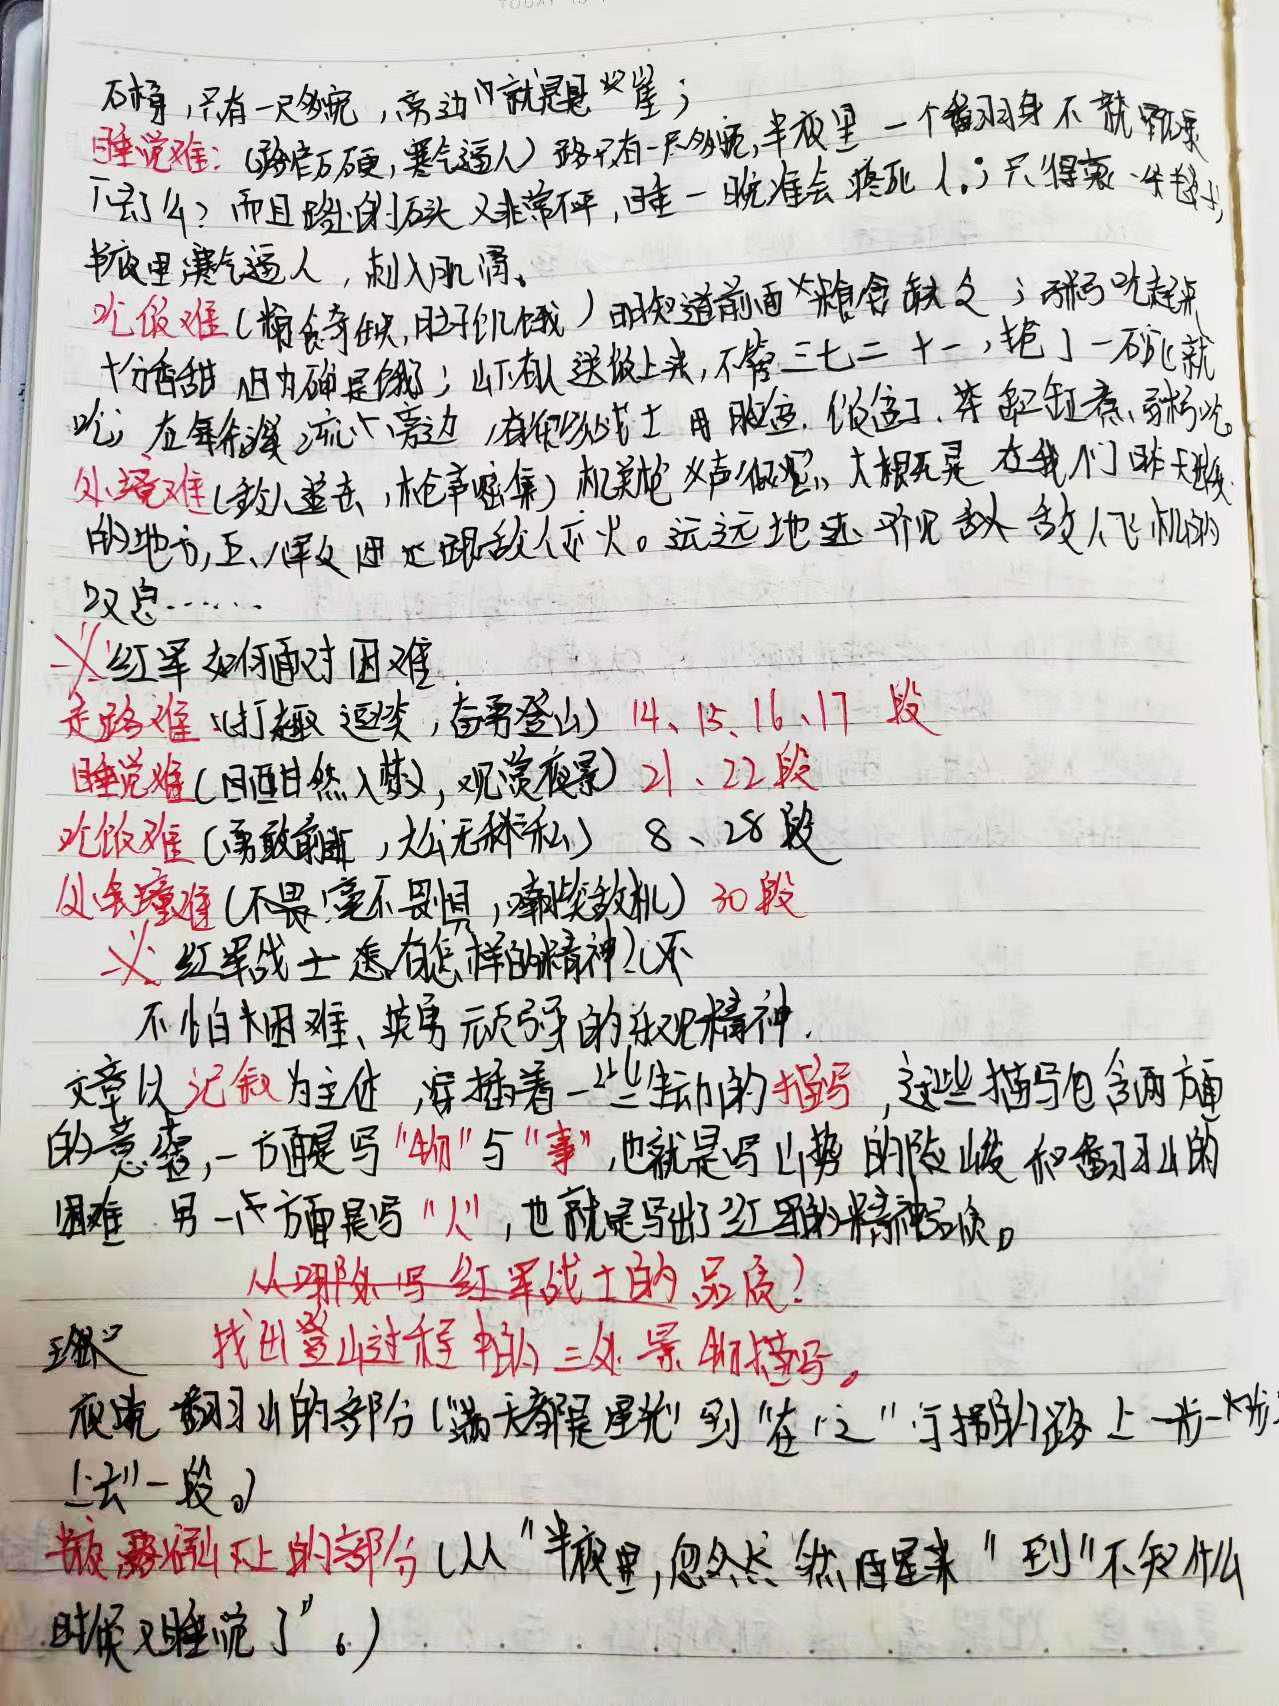 石梯，只有一尺多宽，旁边就是悬崖；
睡觉难：（路窄石硬，寒气逼人）路只有一尺多宽，半夜里一个翻身不就骨碌
下去了么？而且路上的石头又非常不平，睡一晚准会疼死人。；只得裹
半夜里寒气逼人，刺入肌骨。
吃饭难（粮食奇缺，肚子饥饿）明知道前面粮食缺乏；粥吃起来
十分香甜，因为确是饿了；山下有人送饭上来，不管三七二十一，抢了一碗就
吃；在旁边，有很多战士用脸盆、饭盒子、茶缸煮粥吃。
处境难（敌人追击，枪声密集）机关枪声很密，大概是在我们昨天
的地方，五、八军团正跟敌人开火。远远地还听见敌人飞机的
叹息……
红军如何面对困难
走路难（打趣逗笑，奋勇登山）14、15、16、17段
睡觉难（酣然入梦，观赏夜景）21、22段
吃饭难（勇敢前进，大公无私）8、28段
处境难（不畏毫不畏惧，嘲笑敌机）30段
红军战士有怎样的精神？不
不怕困难、英勇顽强的乐观精神.
文章以记叙为主体，穿插着一些生动的描写，这些描写包含两方面
的意蕴，一方面是写“物”与“事”，也就是写山势的险峻和翻山的
困难 另一方面是写“人”，也就是写出了红军的精神品质。
从哪外写红军战士的品质？
找出登山过程中的三处景物描写。
夜晚翻山的部分（“满天都是星光”到“在“之”字拐的路上一步一步
上去”一段。）
半夜露宿山上的部分（从“半夜里，忽然醒来”到“不知什么
时候又睡觉了”。）